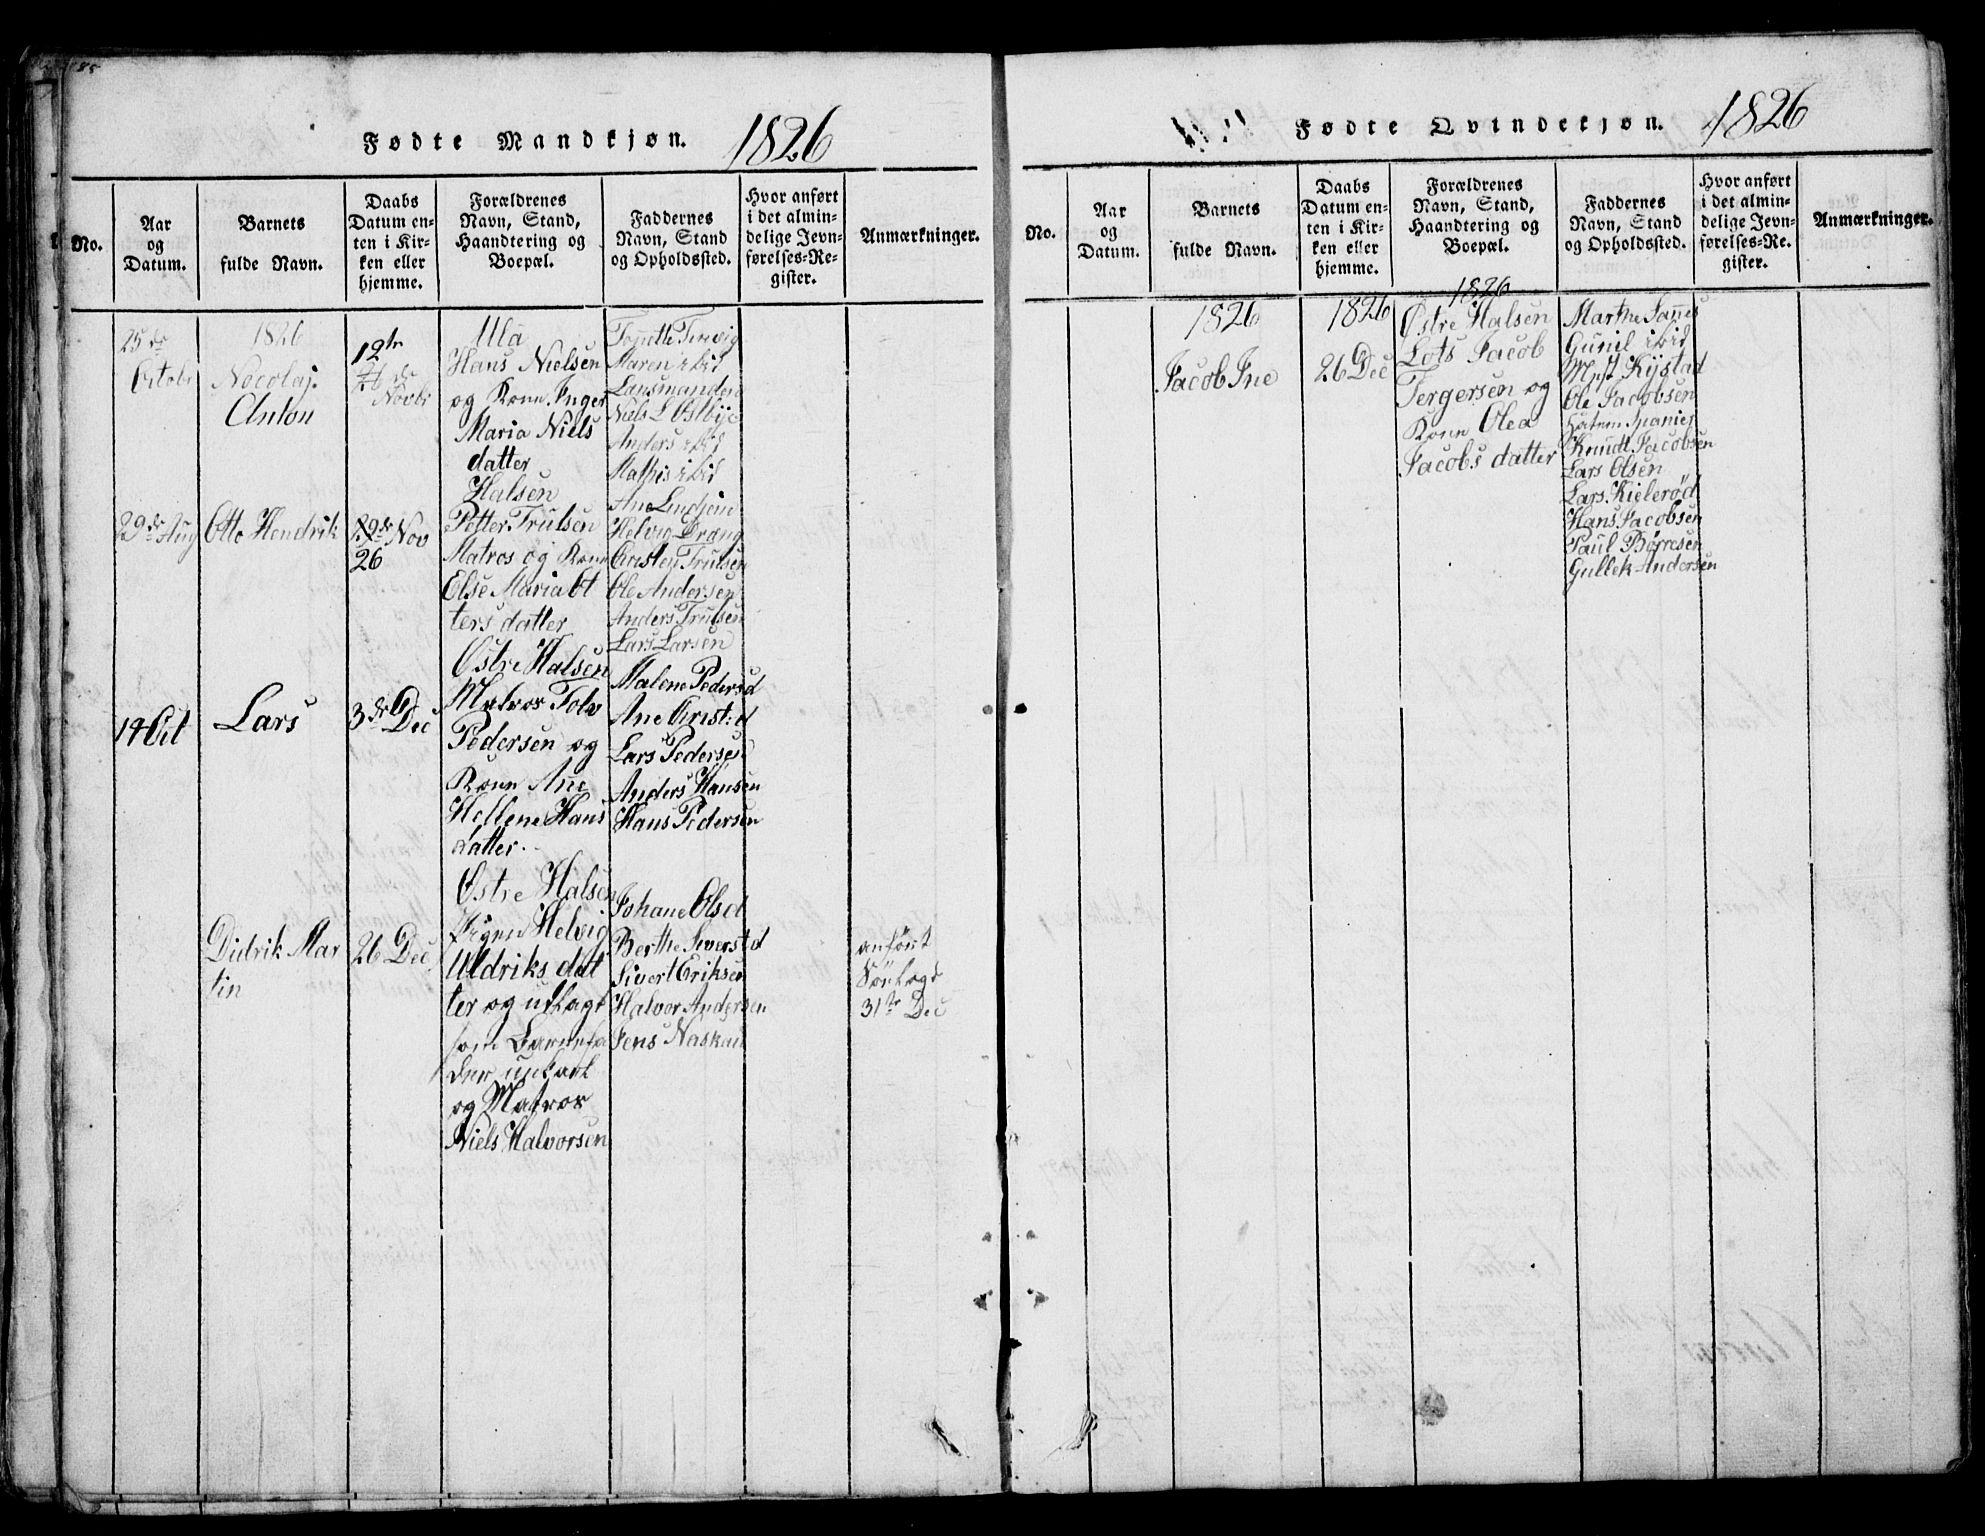 85
Fødte Mandkjøn. 1826
No.
Aar
og
Datum.
Barnets
fulde Navn.
Daabs
Datum en-
ten i Kir-
ken eller
hjemme.
Forældrenes
Navn, Stand,
Haandtering og
Boepæl.
Faddernes
Navn, Stand
og Opholdssted.
Hvor anført
i det almin-
delige Jevn-
førelses-Re-
gister.
Anmærkninger.
25de
Octobr
1826
Nocolaj
Anton
12te
Novbr
Ula
Hans Nielsen
og Kone Inger
Maria Niels
datter
Maren ibid
Lansmanden
Niels L Østbye
Anders ibid
Mathis ibid
29de Aug
Otto Hendrik
Nov
26
Halsen
Petter Trulsen
Matros og Kone
Else Maria Ot
ters datter
Ane
Helvig
Cristen Trulsen
Ole Andersen
Anders Trulsen
Lars Larsen
14 Oct
Lars
3de Dec
Østre Halsen
Matros Tolv
Pedersen og
Kone Ane
Hellene Hans
datter
Malene Pedersd
Ane Crist:d
Lars Pedersen
Anders Hansen
Hans Pedersen
Didrik Mar
tin
26 Dec
Østre Halsen
Pigen Helvig
Uldriks dat
ter og udlagt
som Barnefa
der unkart
og Matros
Niels Halvorsen
Johane Olsd
Berthe Siverst d
Sivert Eriksen
Halvor Andersen
Jens Naskau
anført
31te Dec
Fødte Qvindekjøn. 1826
No.
Aar
og
Datum.
Barnets
fulde Navn.
Daabs
Datum en-
ten i Kir-
ken eller
hjemme.
Forældrenes
Navn, Stand,
Haandtering og
Boepæl.
Faddernes
Navn, Stand
og Opholdssted.
Hvor anført
i det almin-
delige Jevn-
førelses-Re-
gister.
Anmærkninger.
1826
Jacob Ine
1826
26 Dec
1826
Østre Halsen
Lots Jacob
Tergersen og
Kone Olea
Jacobs datter
Marthe Sannes
Gunil ibid
Kystad
Ole Jacobsen
Knudt Jacobsen
Lars Olsen
Lars Kielerød
Hans Jacobsen
Paul Børresen
Gullek Andersen